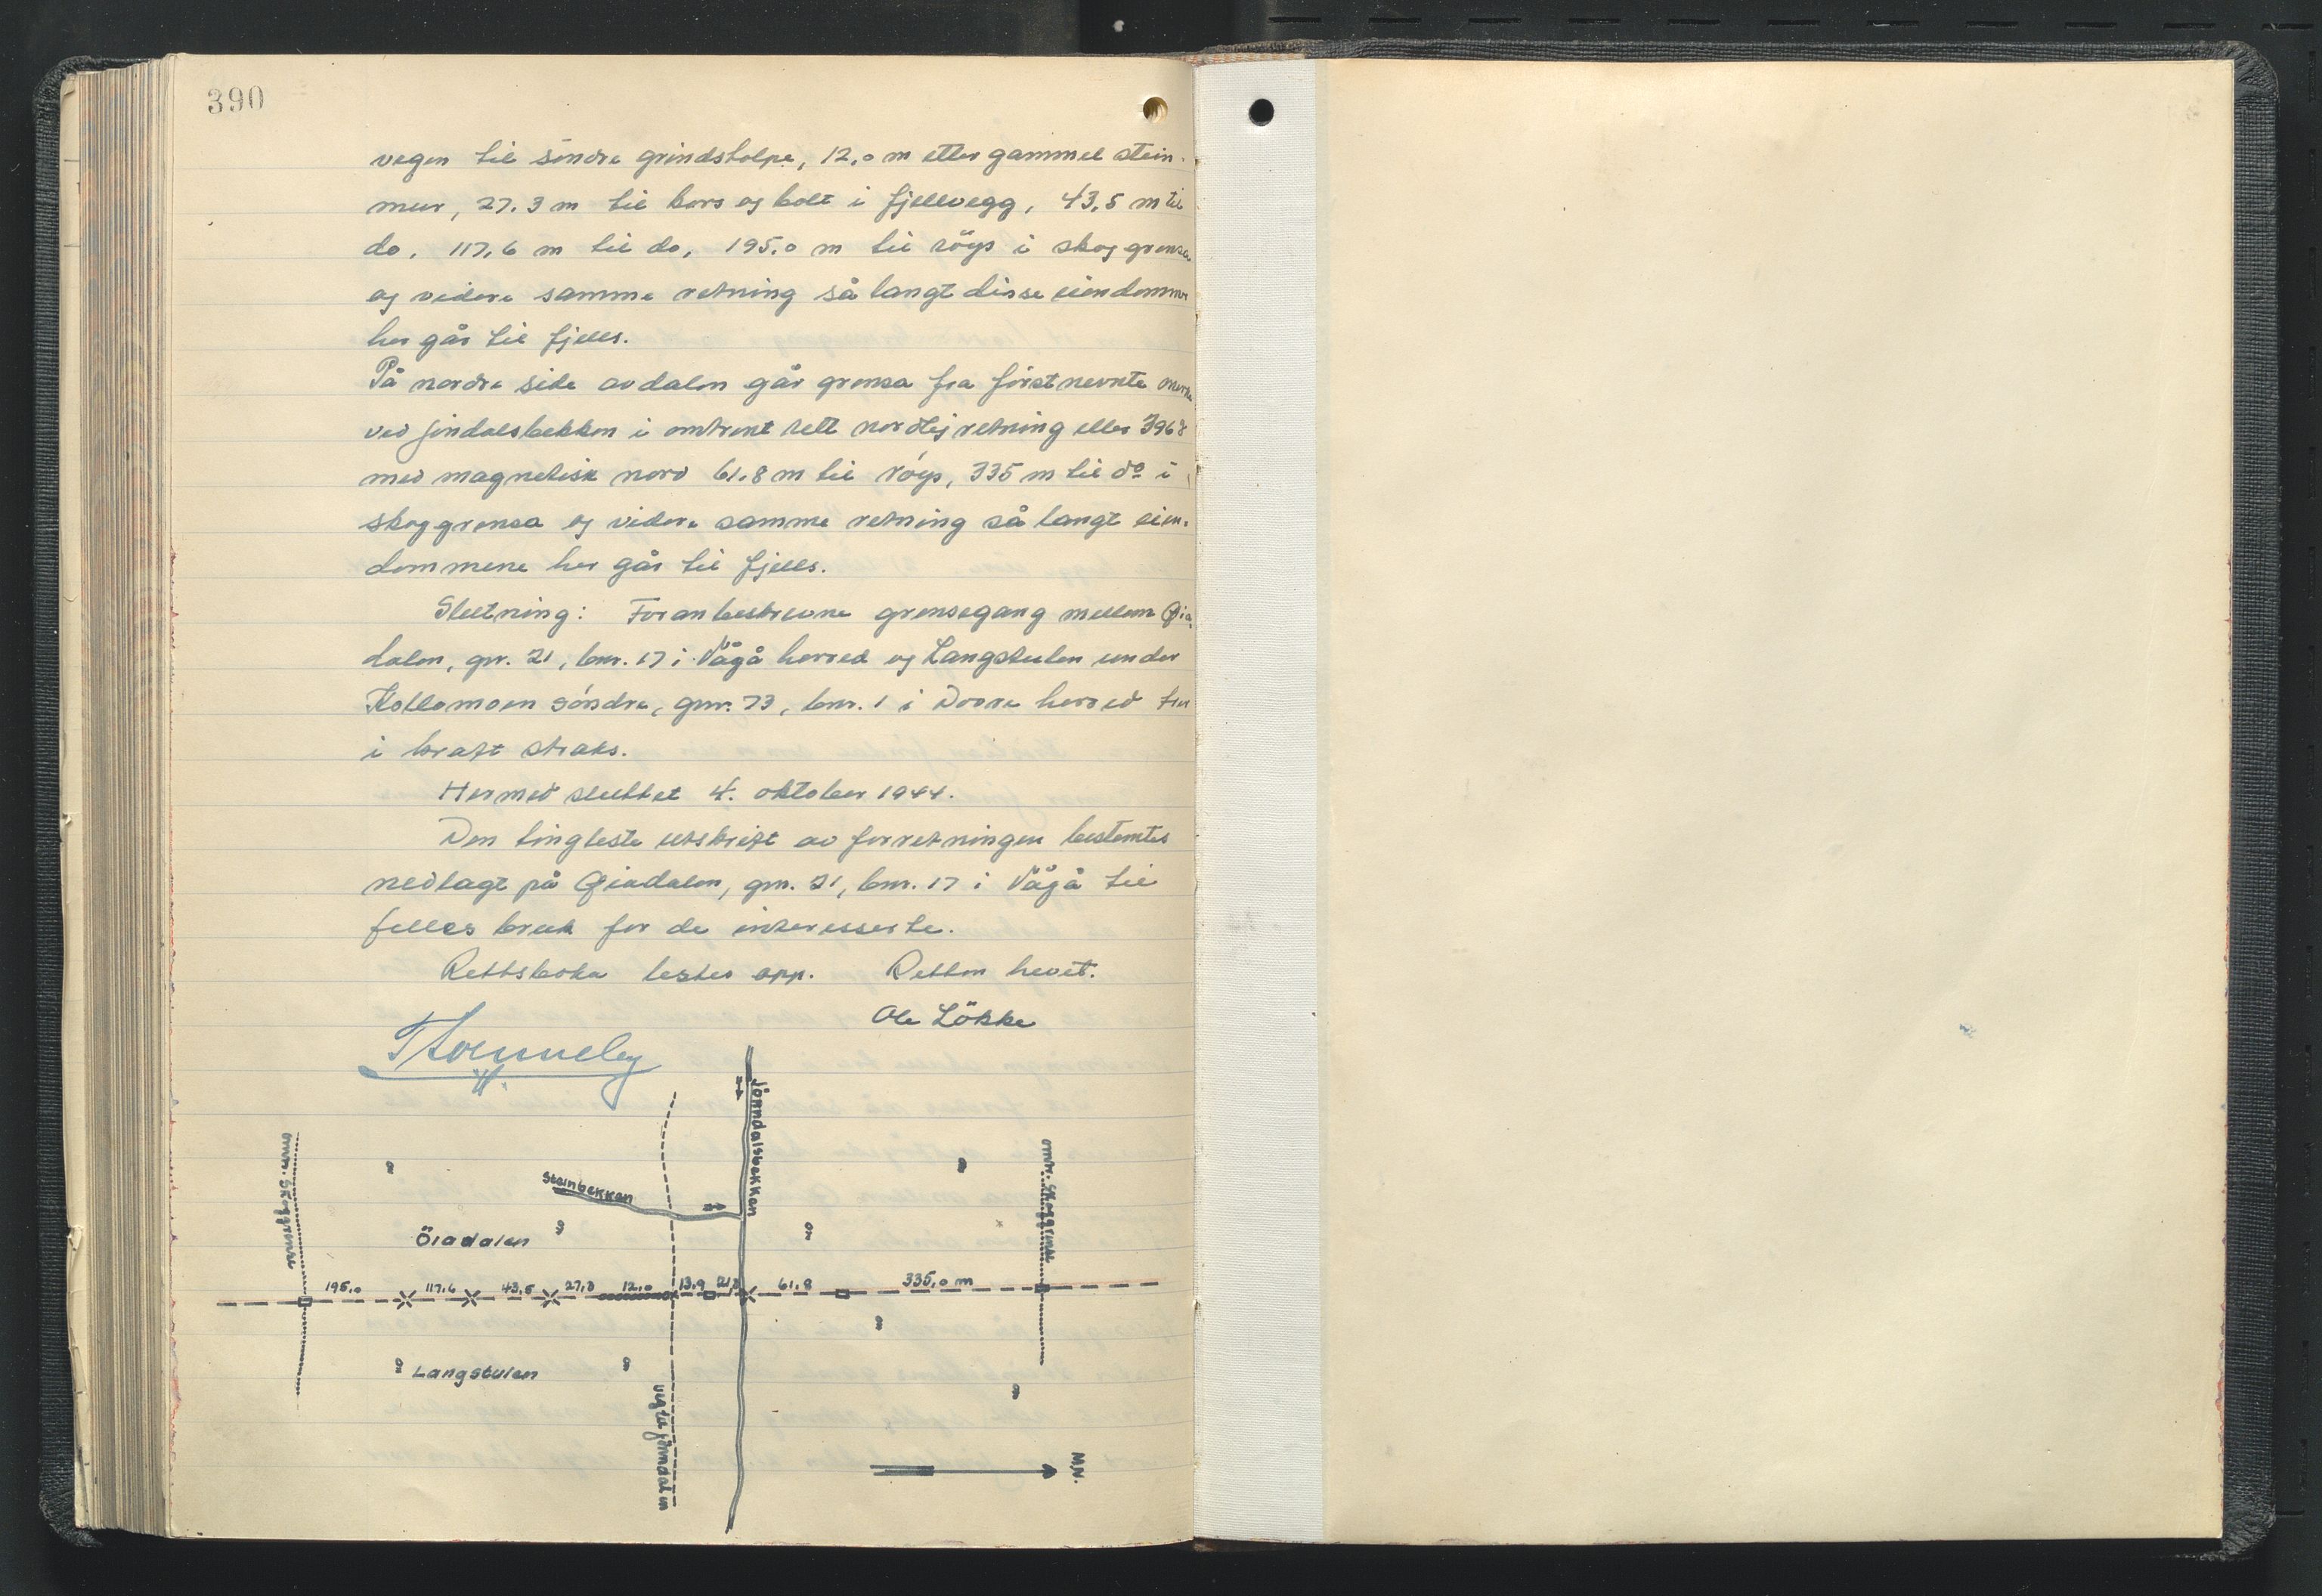 390
vegen til söndre grindstolpe, 12,0 m etter gammel stein-
mur, 27.3 m til kors og bolt i fjellvegg, 43,5 m til
do, 117,6 m til do, 195,0 m til röys i skoggrensa
og videre samme retning så langt disse eiendommer
her går til fjells.
På nordre side av dalen går grensa fra förstnevnte merke
ved Jöndalsbekken i omtrent rett nordlig retning eller 396g
med magnetisk nord 61.8 m til röys, 335 m til do i
skoggrensa og videre samme retning så langt eien-
dommene her går til fjells.
Slutning: Foranbeskrevne grensegang mellem Öia-
dalen, gnr. 21, bnr. 17 i Vågå herred og Langstulen under
Kollomoen söndre, gnr. 73, bnr. 1 i Dovre herred trer
i kraft straks.
Hermed sluttet 4. oktober 1944.
Den tingleste utskrift av forretningen bestemtes
nedlagt på Öiadalen, gnr. 21, bnr. 17 i Vågå til
felles bruk for de interesserte.
Rettsboka lestes opp. Retten hevet.
Ole Lökke
Jönndalsbekken
omtr. Skoggrense
omtr. Skoggrense
Steinbekken
Öiadalen
195,0 117,6 43,5 27,3 12,0 13,9 21,3 61,8 335,0 m
Langstulen
veg til Jönndalen
M.N.